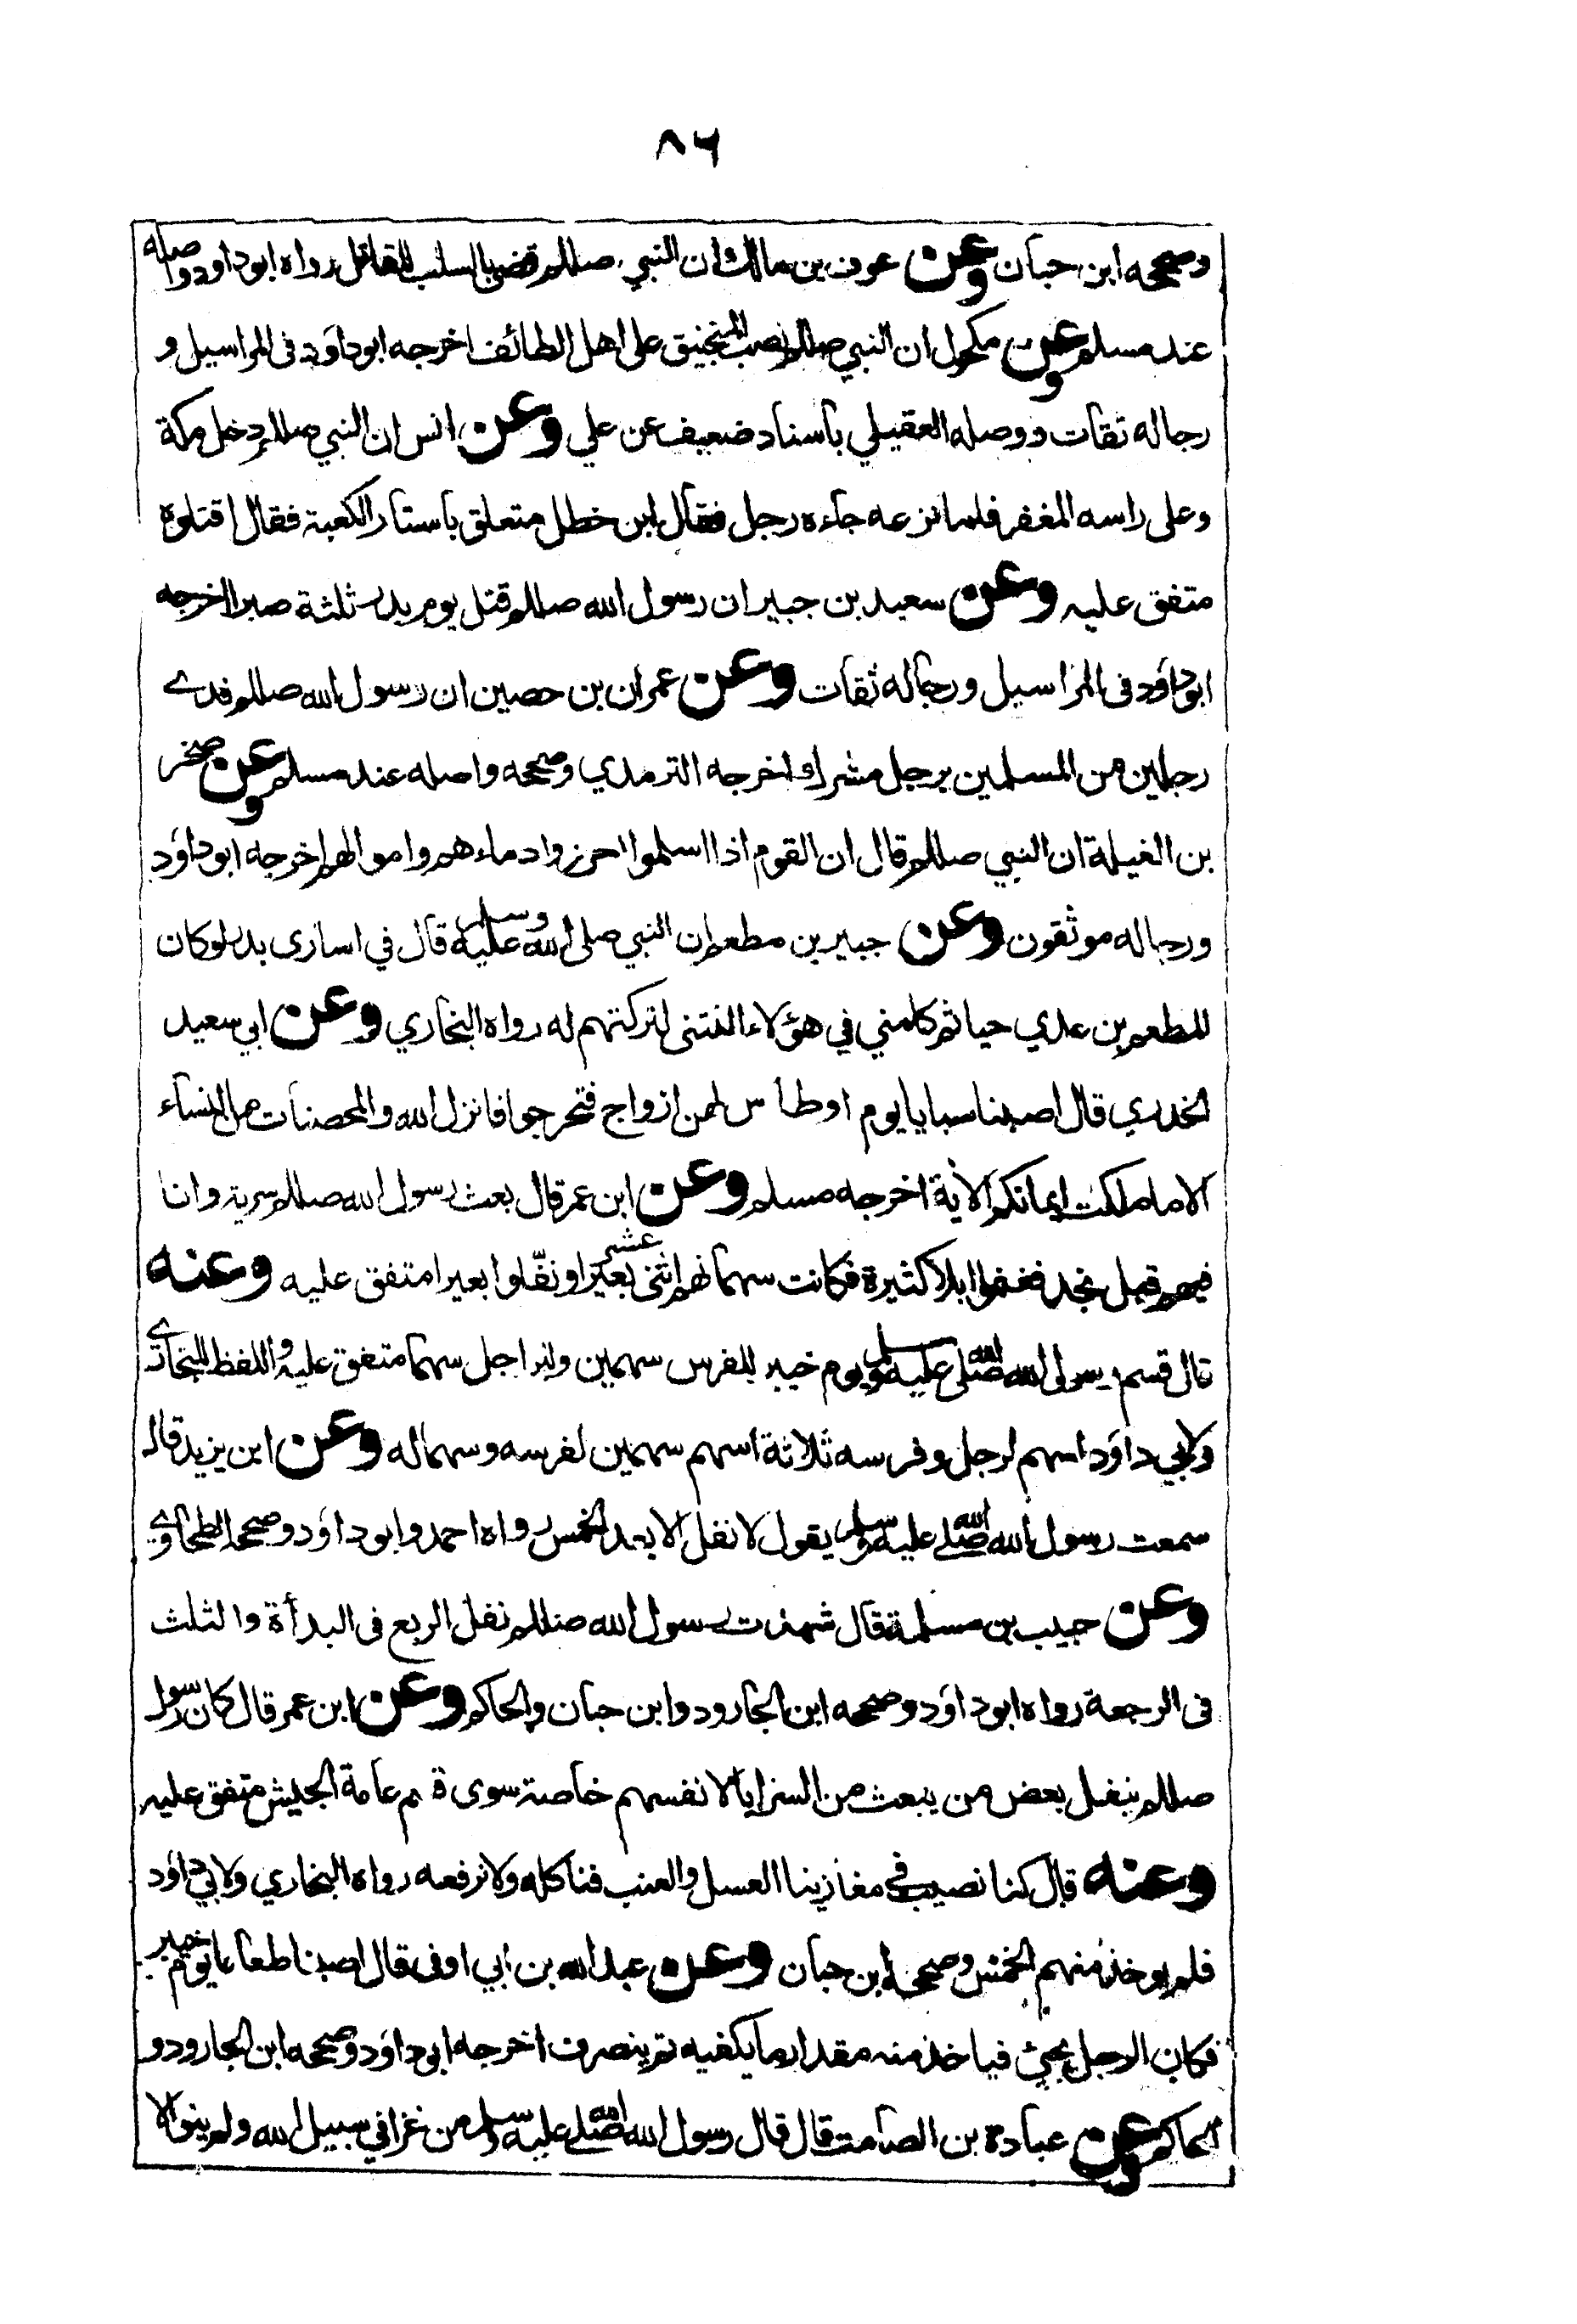 ٨٦
وصححه ابن حبان وعن عوف بن مالك ان النبي صللم قضى بالسلب للقاتل رواه ابو داود واصله
عند مسلم وعن مكحول ان النبي صللم نصب المنجنيق على اهل الطائف اخرجه ابو داود فى المراسيل و
رجاله ثقات ووصله العقيلي باسناد ضعيف عن علي وعن انس ان النبي صللم دخل مكة
وعلى راسه المغفر فلما نزعه جاءه رجل فقال ابن خطل متعلق باستار الكعبة فقال اقتلوه
متفق عليه وعن سعيد بن جبير ان رسول الله صللم قتل يوم بدر ثلثة صبرا اخرجه
ابو داود فى المراسيل ورجاله ثقات وعن عمران بن حصين ان رسول الله صللم فدى
رجلين من المسلمين برجل مشرك اخرجه الترمذي وصححه واصله عند مسلم وعن صخر
بن الغيلة ان النبي صللم قال ان القوم اذا اسلموا احرزوا دماءهم واموالهم اخرجه ابو داود
ورجاله موثقون وعن جبير بن مطعم ان النبي صلى الله عليه وسلم قال في اسارى بدر لو كان
للمطعم بن عدي حيا ثم كلمني في هؤلاء النتنى لتركتهم له رواه البخاري وعن ابي سعيد
الخدري قال اصبنا سبايا يوم اوطاس لهن ازواج فتحرجوا فانزل الله والمحصنات من النساء
الا ما ملكت ايمانكم الاية اخرجه مسلم وعن ابن عمر قال بعث رسول الله صللم سرية وانا
فيهم قبل نجد فغنموا ابلا كثيرة فكانت سهمانهم اثنى عشر بعيرا ونفّلوا بعيرا متفق عليه وعنه
قال قسم رسول الله صلى الله عليه وسلم يوم خيبر للفرس سهمين وللراجل سهما متفق عليه واللفظ للبخاري
ولابي داود اسهم لرجل وفرسه ثلاثة اسهم سهمين لفرسه وسهما له وعن ابن يزيد قال
سمعت رسول الله صلى الله عليه وسلم يقول لا نفل الا بعد الخمس رواه احمد وابو داود وصححه الطحاوي
وعن حبيب بن مسلمة قال شهدت رسول الله صللم نفل الربع فى البدأة والثلث
فى الرجعة رواه ابو داود وصححه ابن الجارود وابن حبان والحاكم وعن ابن عمر قال كان رسول
صللم ينفل بعض من يبعث من السرايا لانفسهم خاصة سوى قسم عامة الجيش متفق عليه
وعنه قال كنا نصيب في مغازينا العسل والعنب فناكله ولا نرفعه رواه البخاري ولابي داود
فلم يوخذ منهم الخمس وصححه ابن حبان وعن عبد الله بن ابي اوفى قال اصبنا طعاما يوم خيبر
فكان الرجل يجئ فياخذ منه مقدار ما يكفيه ثم ينصرف اخرجه ابو داود وصححه ابن الجارود و
الحاكم وعن عبادة بن الصامت قال قال رسول الله صلى الله عليه وسلم من غزا في سبيل الله ولم ينو الا